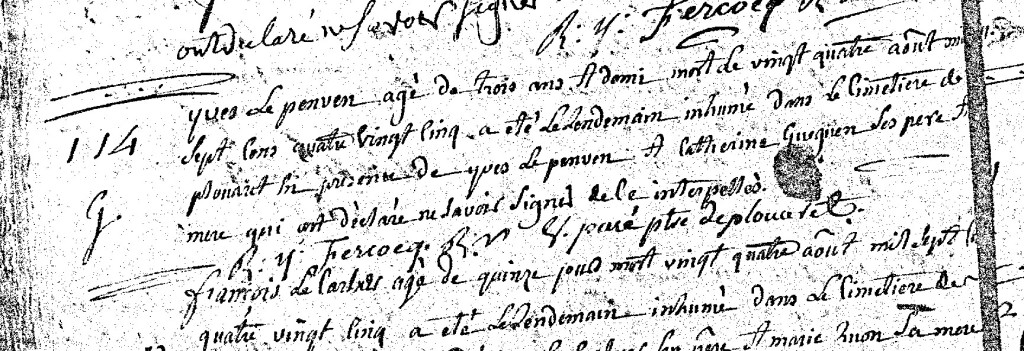 ont declaré ne savoir signer
R. Y. Fercocq R
yves Le penven agé de trois ans Et demi mort de vingt quatre août mil
114
sept cens quatre vingt cinq a eté Le Lendemain inhumé dans Le Cimetiere de
plouaret En presence de yves Le penven Et Catherine Gueguen Ses pere Et
G.
mere qui ont déclaré ne Savoir Signer de ce interpellés.
R. Y. Fercocq. R. V. paré ptre de plouaret.
françois Le agé de quinze jours mort vingt quatre août mil Sept
quatre vingt cinq a eté Le Lendemain inhumé dans Le Cimetiere de
pere Et marie La mere